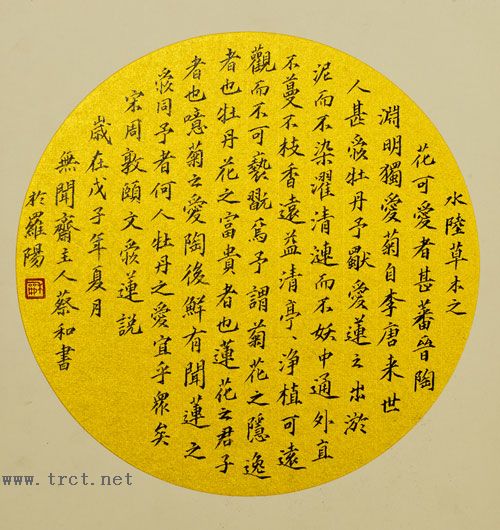 水陸草木之
花可愛者甚蕃晉陶
淵明獨愛菊自李唐来世
人甚愛牡丹予獨愛蓮之出淤
泥而不染濯清漣而不妖中通外直
不蔓不枝香遠益清亭、淨植可遠
觀而不可褻翫焉予謂菊花之隱逸
者也牡丹花之富貴者也蓮花之君子
者也噫菊之愛陶後鮮有聞蓮之
愛同予者何人牡丹之愛宜乎衆矣
宋周敦頤文愛蓮說
嵗在戊子年夏月
無聞齋主人蔡和書
於羅陽
www.trct.net